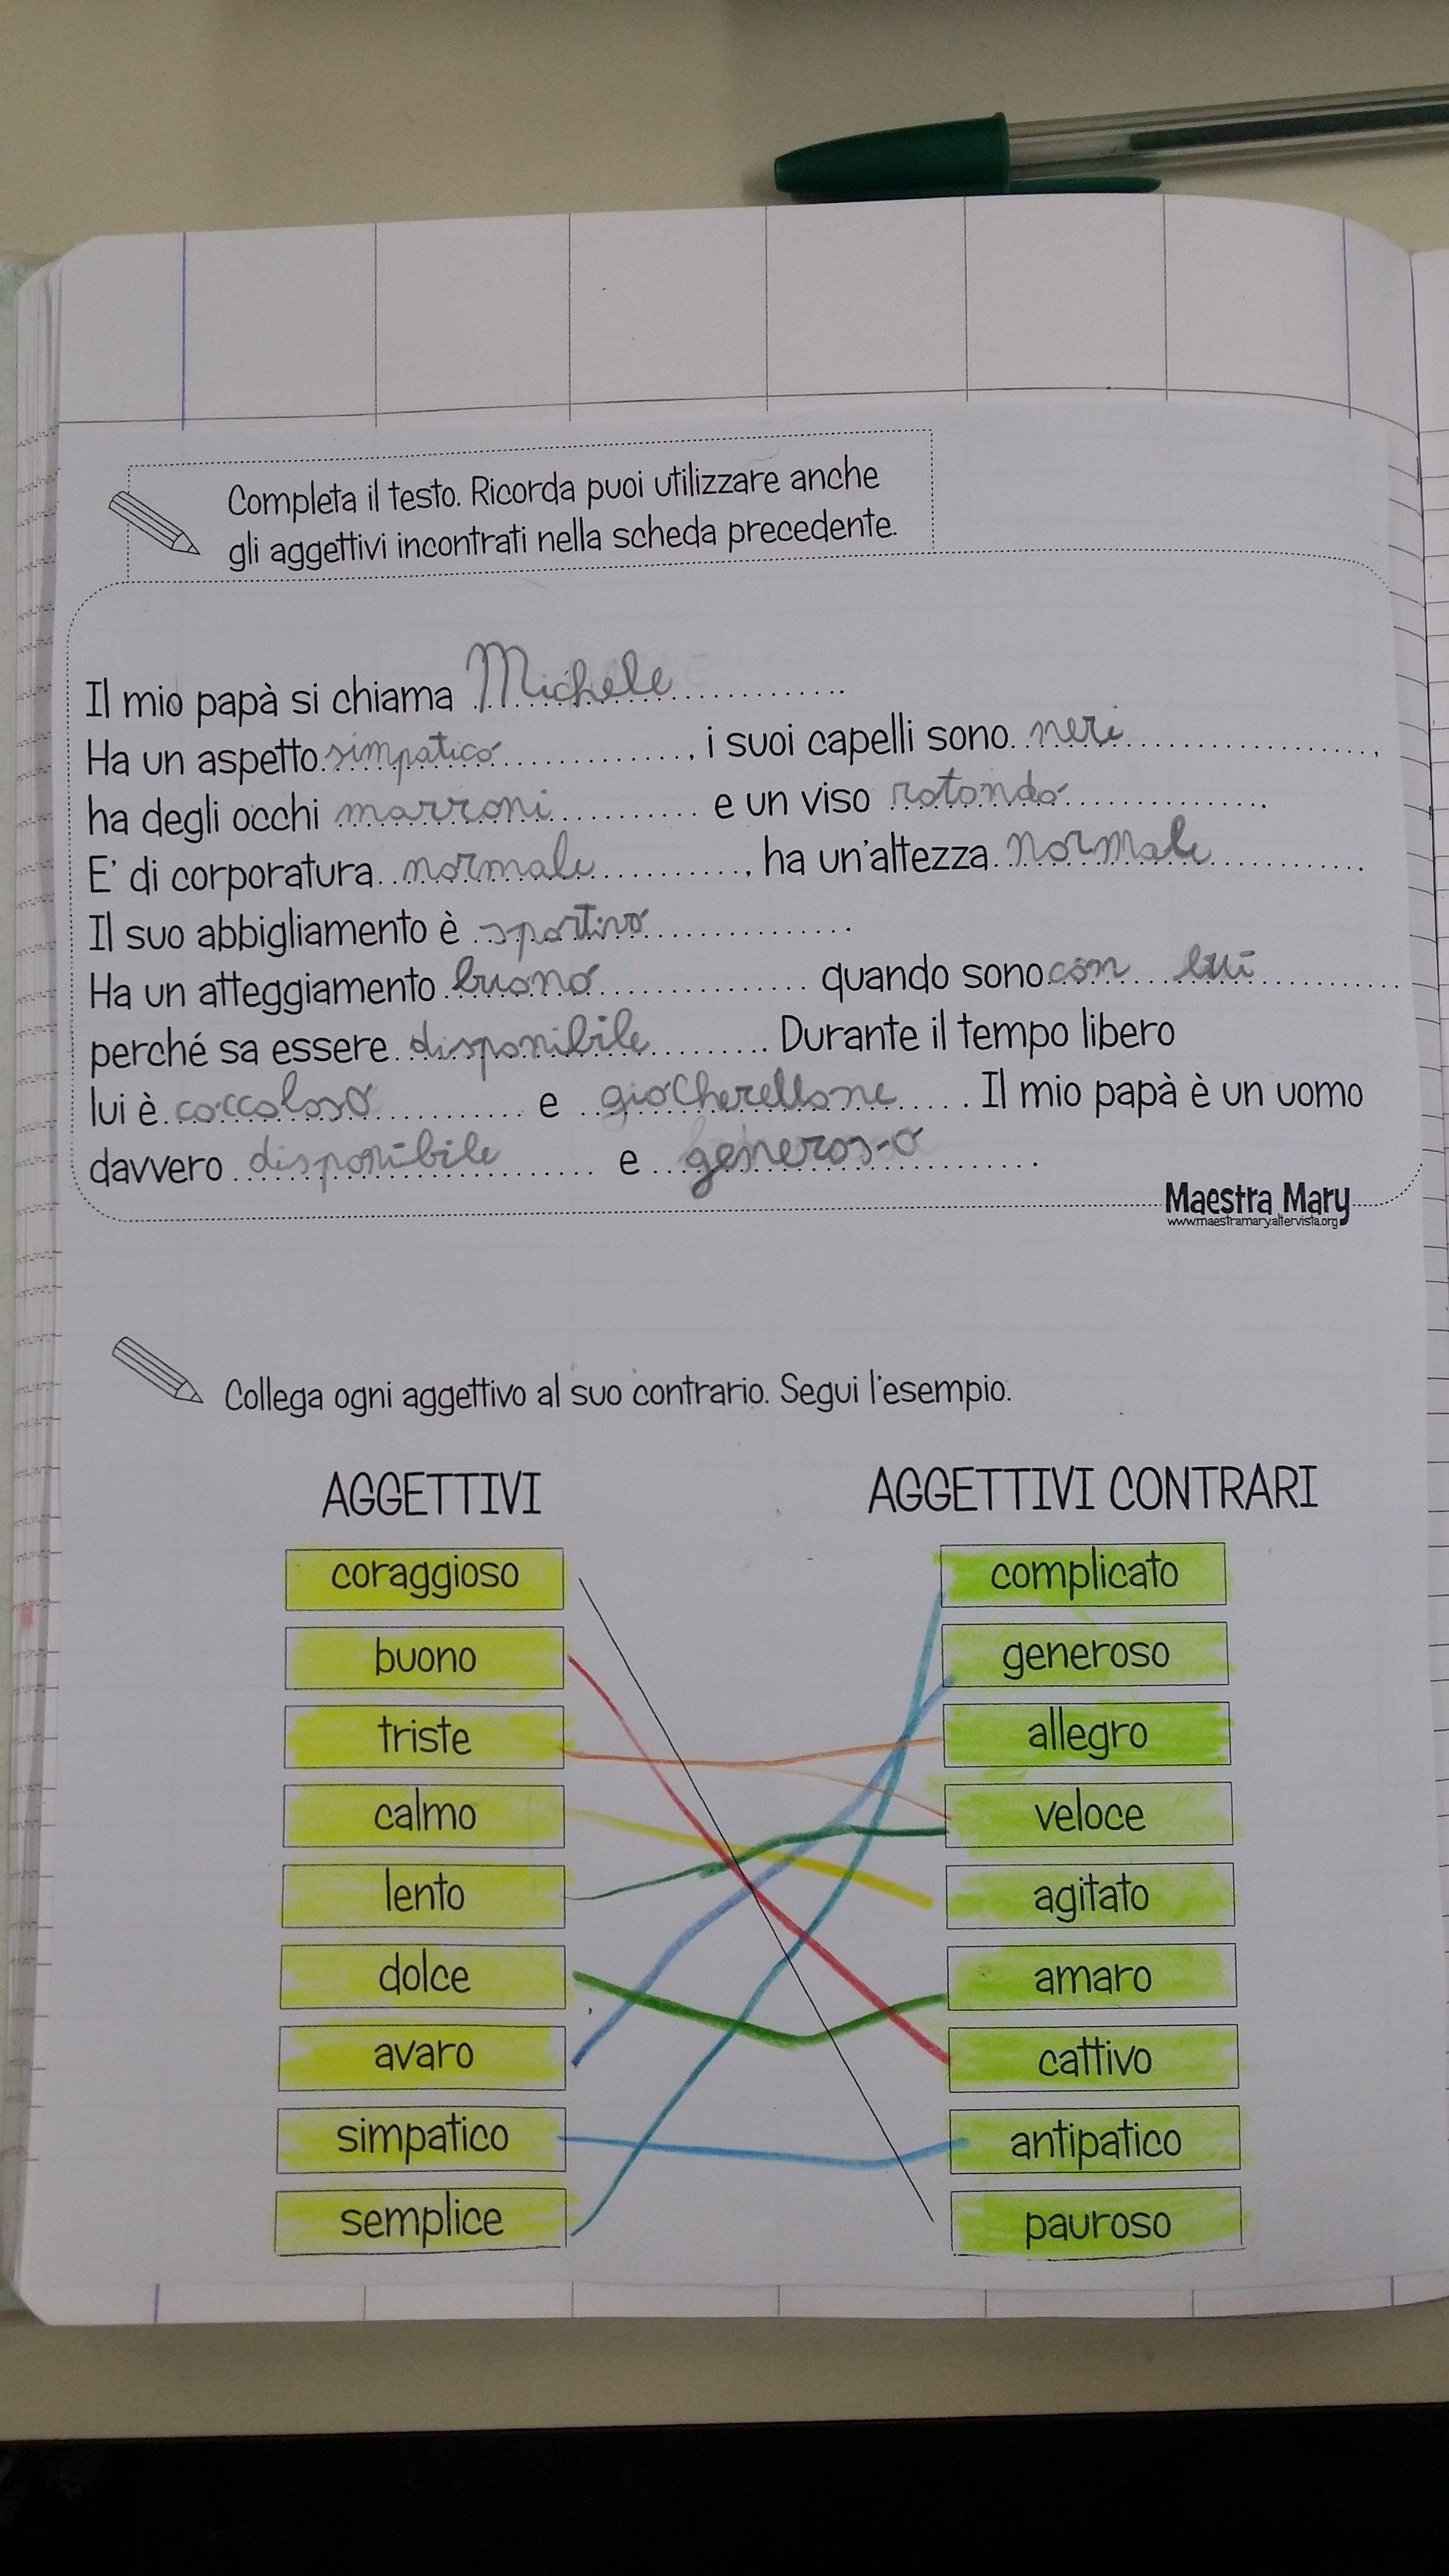 Completa il testo. Ricorda puoi utilizzare anche
gli aggettivi incontrati nella scheda precedente.
Il mio papà si chiama Michele
Ha un aspetto simpatico, i suoi capelli sono neri,
ha degli occhi marroni e un viso rotondo.
E' di corporatura normale, ha un'altezza normale.
Il suo abbigliamento è sportivo.
Ha un atteggiamento buono quando sono con lui
perché sa essere disponibile. Durante il tempo libero
lui è coccoloso e giocherellone. Il mio papà è un uomo
davvero disponibile e generoso.
Maestra Mary
www.maestramary.altervista.org
Collega ogni aggettivo al suo contrario. Segui l'esempio.
AGGETTIVI AGGETTIVI CONTRARI
coraggioso complicato
buono generoso
triste allegro
calmo veloce
lento agitato
dolce amaro
avaro cattivo
simpatico antipatico
semplice pauroso